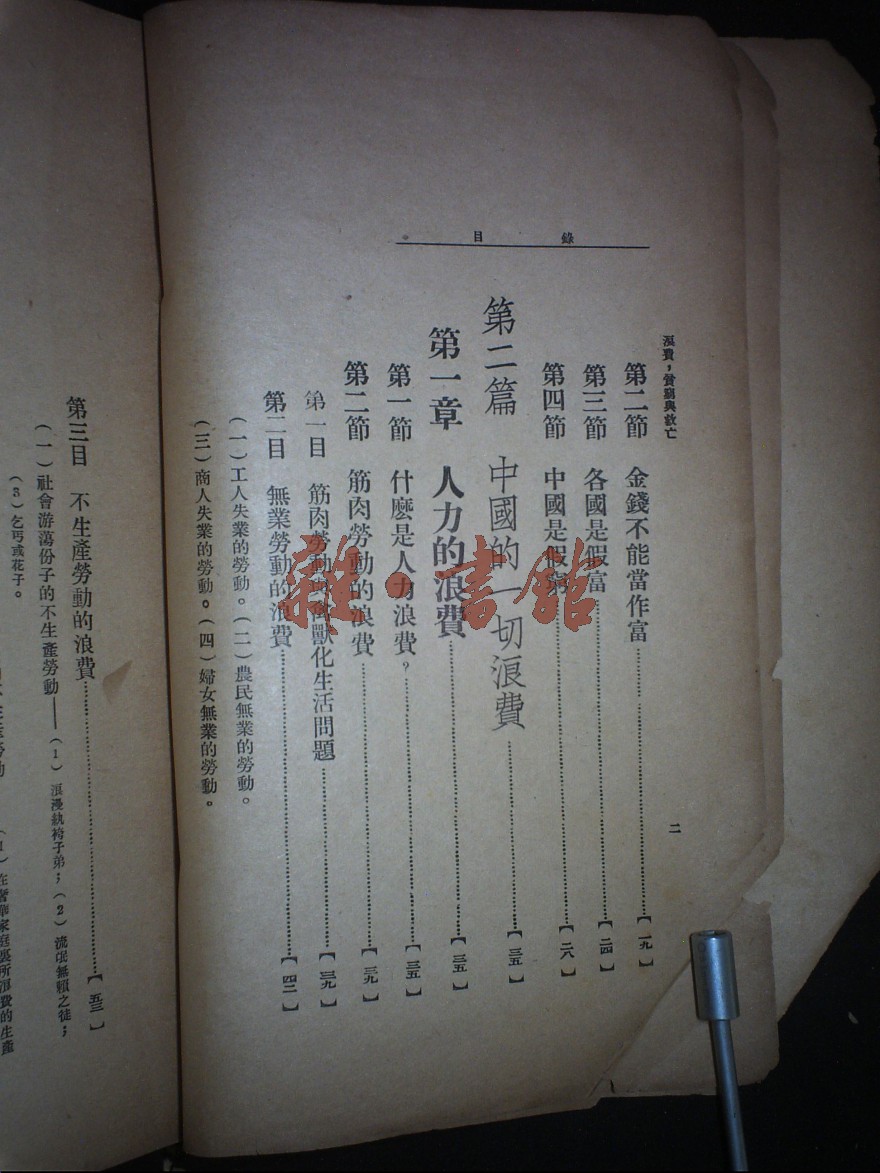 目錄
浪費，貧窮與救亡
二
第二節 金錢不能當作富……【一九】
第三節 各國是假富……【二四】
第四節 中國是假窮……【二八】
第二篇 中國的一切浪費……【三五】
第一章 人力的浪費……【三五】
第一節 什麽是人力浪費？……【三五】
第二節 筋肉勞動的浪費……【三九】
第一目 筋肉勞動與禽獸化生活問題……【三九】
第二目 無業勞動的浪費……【四二】
（一）工人失業的勞動。（二）農民無業的勞動。
（三）商人失業的勞動。（四）婦女無業的勞動。
第三目 不生產勞動的浪費……【五三】
（一）社會游蕩份子的不生產勞動——（1）浪漫紈袴子弟；（2）流氓無賴之徒；
（3）乞丐或花子。
在奢華家庭裏所浪費的生產
雜·書館